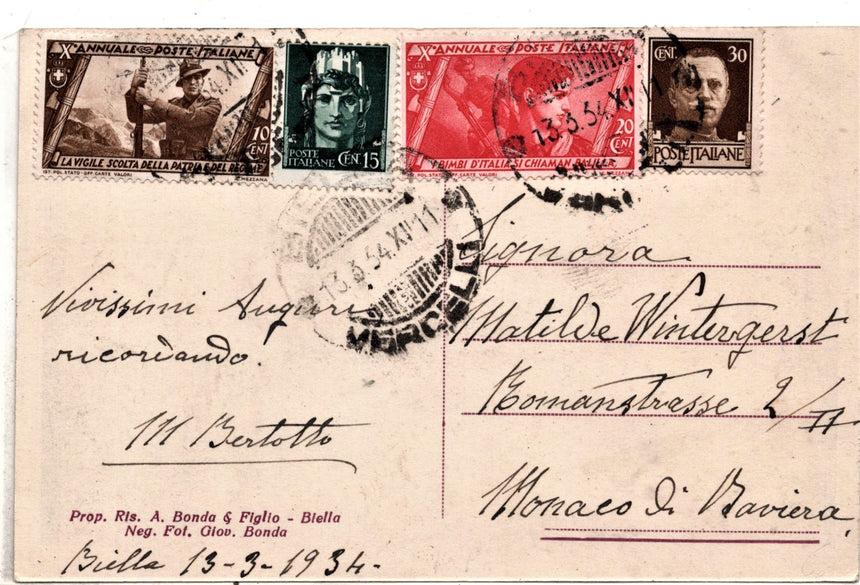 Xº ANNUALE POSTE ITALIANE
10 CENT
LA VIGILE SCOLTA DELLA PATRIA E DEL REGIME
IST. POL. STATO - OFF. CARTE VALORI
MEZZANA
POSTE ITALIANE CENT. 15
Xº ANNUALE POSTE ITALIANE
20 CENT
I BIMBI D'ITALIA SI CHIAMAN BALILLA
IST. POL. STATO - OFF. CARTE VALORI
CENT. 30
POSTE ITALIANE
13.3.34.XII 11
VERCELLI
13.3.34.XII 11
Vivissimi Auguri
ricordando.
M Bertotto
Prop. Ris. A. Bonda & Figlio - Biella
Neg. Fot. Giov. Bonda
Biella 13-3-1934-
Signora
Matilde Wintergerst
Romanstrasse 2/II
Monaco di Baviera